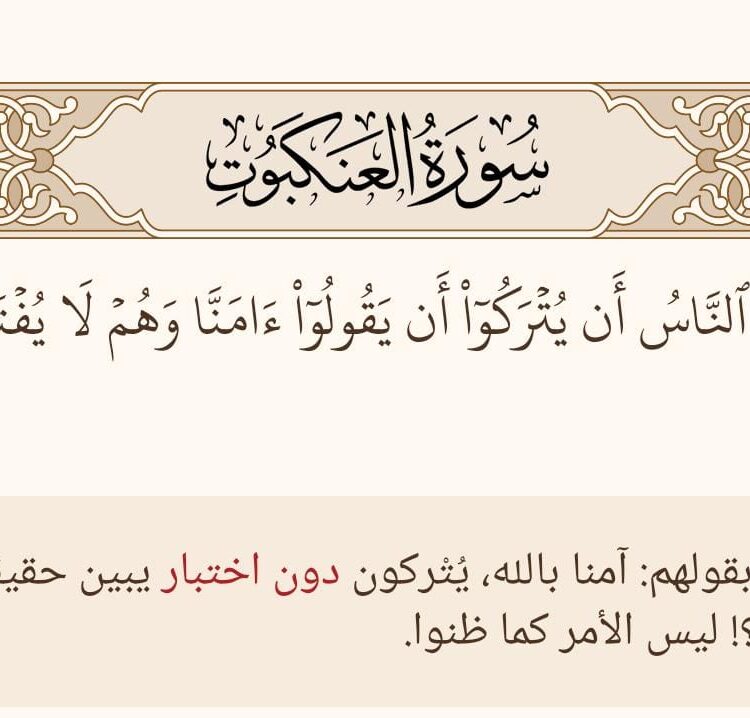 سُورَةُ العَنكَبُوتِ
ٱلنَّاسُ أَن يُتۡرَكُوٓاْ أَن يَقُولُوٓاْ ءَامَنَّا وَهُمۡ لَا
بقولهم: آمنا بالله، يُتْركون دون اختبار يبين
؟! ليس الأمر كما ظنوا.